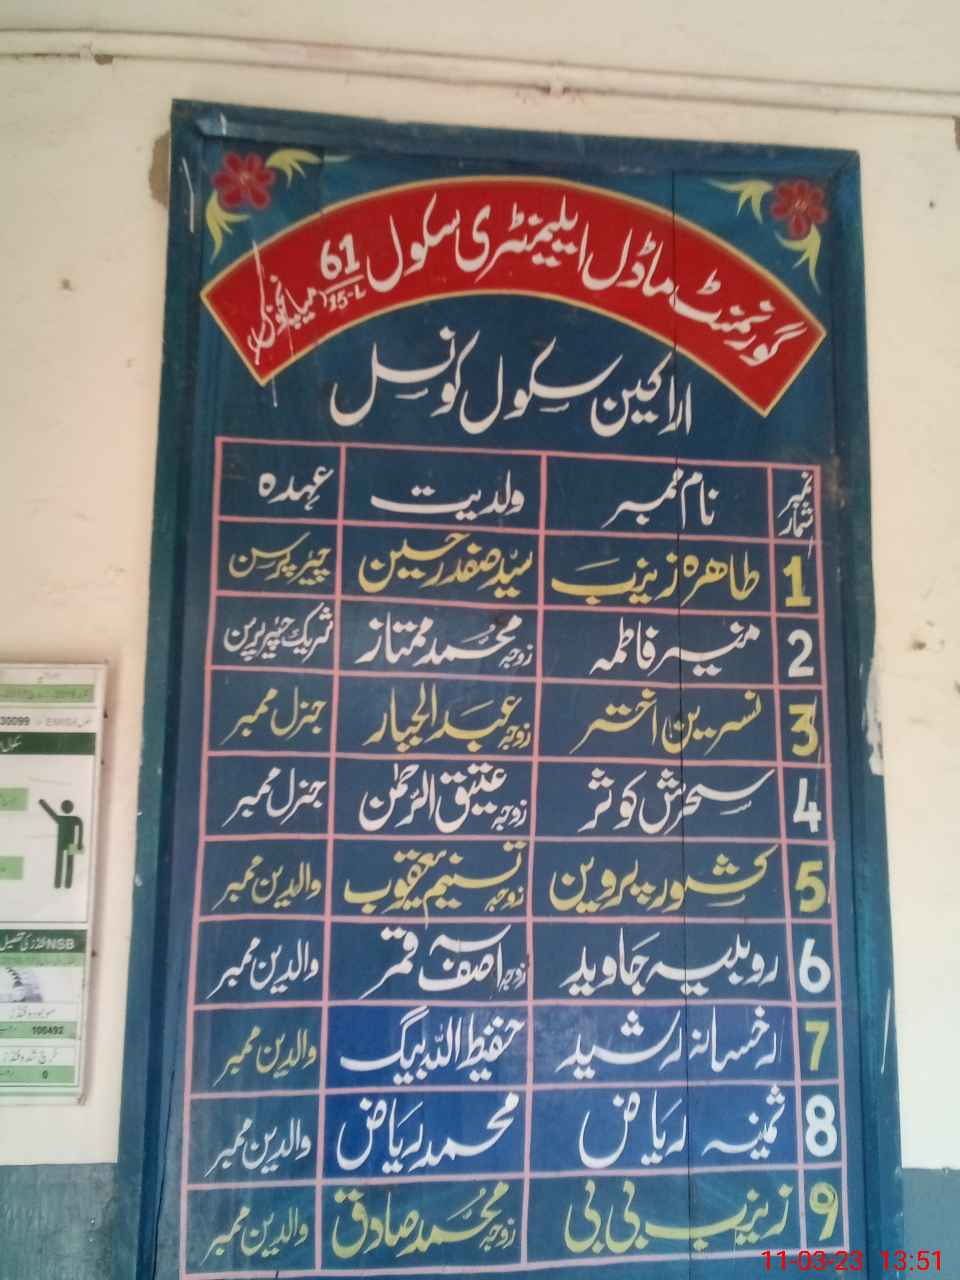 گورنمنٹ ماڈل ایلیمنٹری سکول 61/15-L میاں چنوں
اراکین سکول کونسل
نمبر شمار نام ممبر ولدیت عہدہ
1 طاہرہ زینب سیّد صفدر حسین چیئر پرسن
2 منیر فاطمہ زوجہ محمد ممتاز شریک چیئر پرسن
3 نسرین اختر زوجہ عبد الجبار جنرل ممبر
4 سحرش کوثر زوجہ عتیق الرحمٰن جنرل ممبر
5 کشور پروین زوجہ تسنیم یعقوب والدین ممبر
6 روبیہ جاوید زوجہ آصف قمر والدین ممبر
7 رخسانہ رشید حفیظ اللہ بیگ والدین ممبر
8 ثمینہ ریاض محمد ریاض والدین ممبر
9 زینب بی بی زوجہ محمد صادق والدین ممبر
30099
NSB فنڈز کی تفصیل
موجودہ فنڈز
100492
خرچ شدہ فنڈز
0
11-03-23 13:51